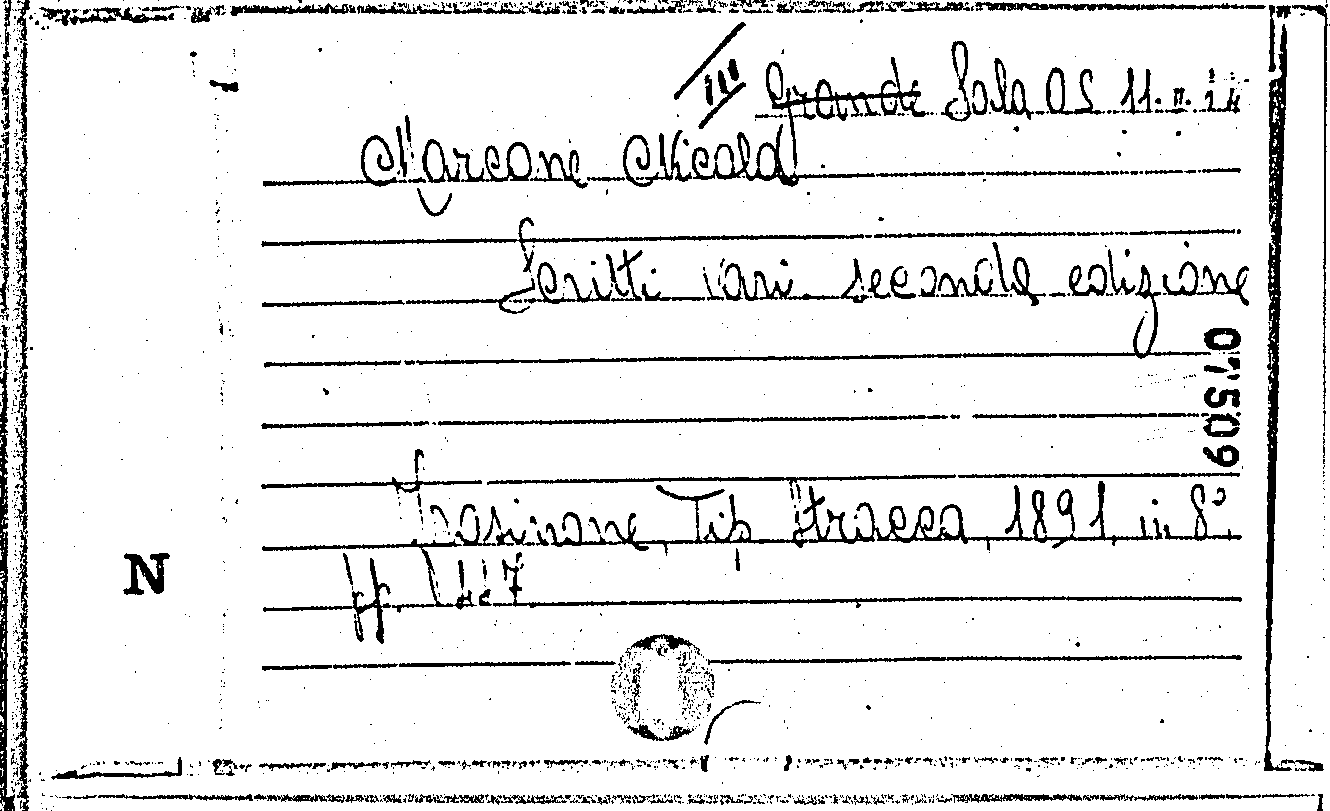 III Grande Sala OS 11. II. 14
Marcone Nicola
Scritti vari seconda edizione
07509
Frosinone, Tip. Stracca, 1891, in 8°.
N
pp. 427